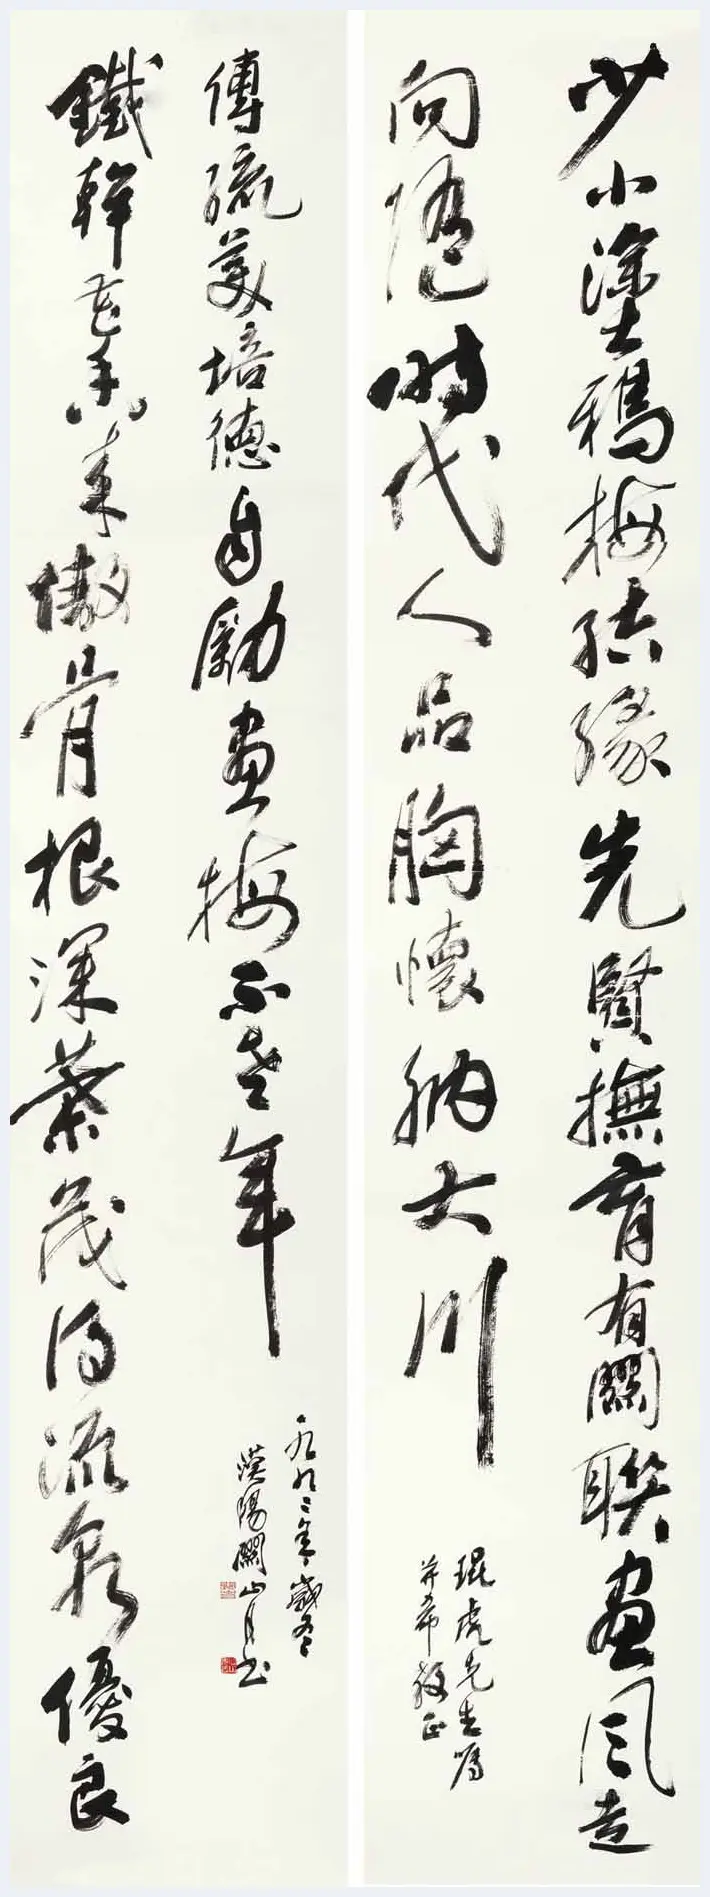 少小塗鴉梅結緣先賢撫育有關聯畫風走
向隨時代人品胸懷納大川
琨虎先生囑
并希教正
鐵幹花香來傲骨根深葉茂得流泉優良
傳統美培德自勵畫梅不老年
一九九二年歲冬
漠陽關山月書